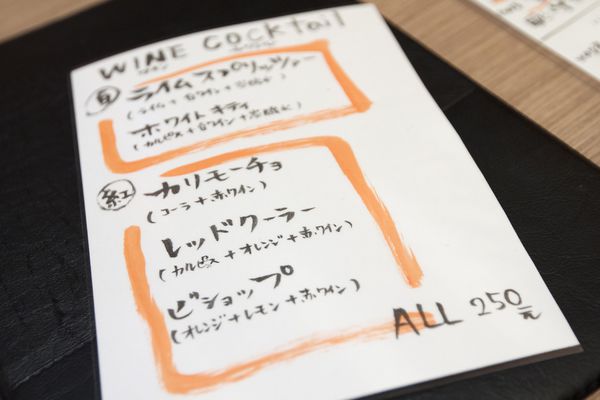 WINE COCKTail
ワイン カクテル
白 ライムスプリッツァー
(ライム+白ワイン+炭酸水)
ホワイトキティ
(カルピス+白ワイン+炭酸水)
紅 カリモーチョ
(コーラ+赤ワイン)
レッドクーラー
(カルピス+オレンジ+赤ワイン)
ビショップ
(オレンジ+レモン+赤ワイン)
ALL 250元